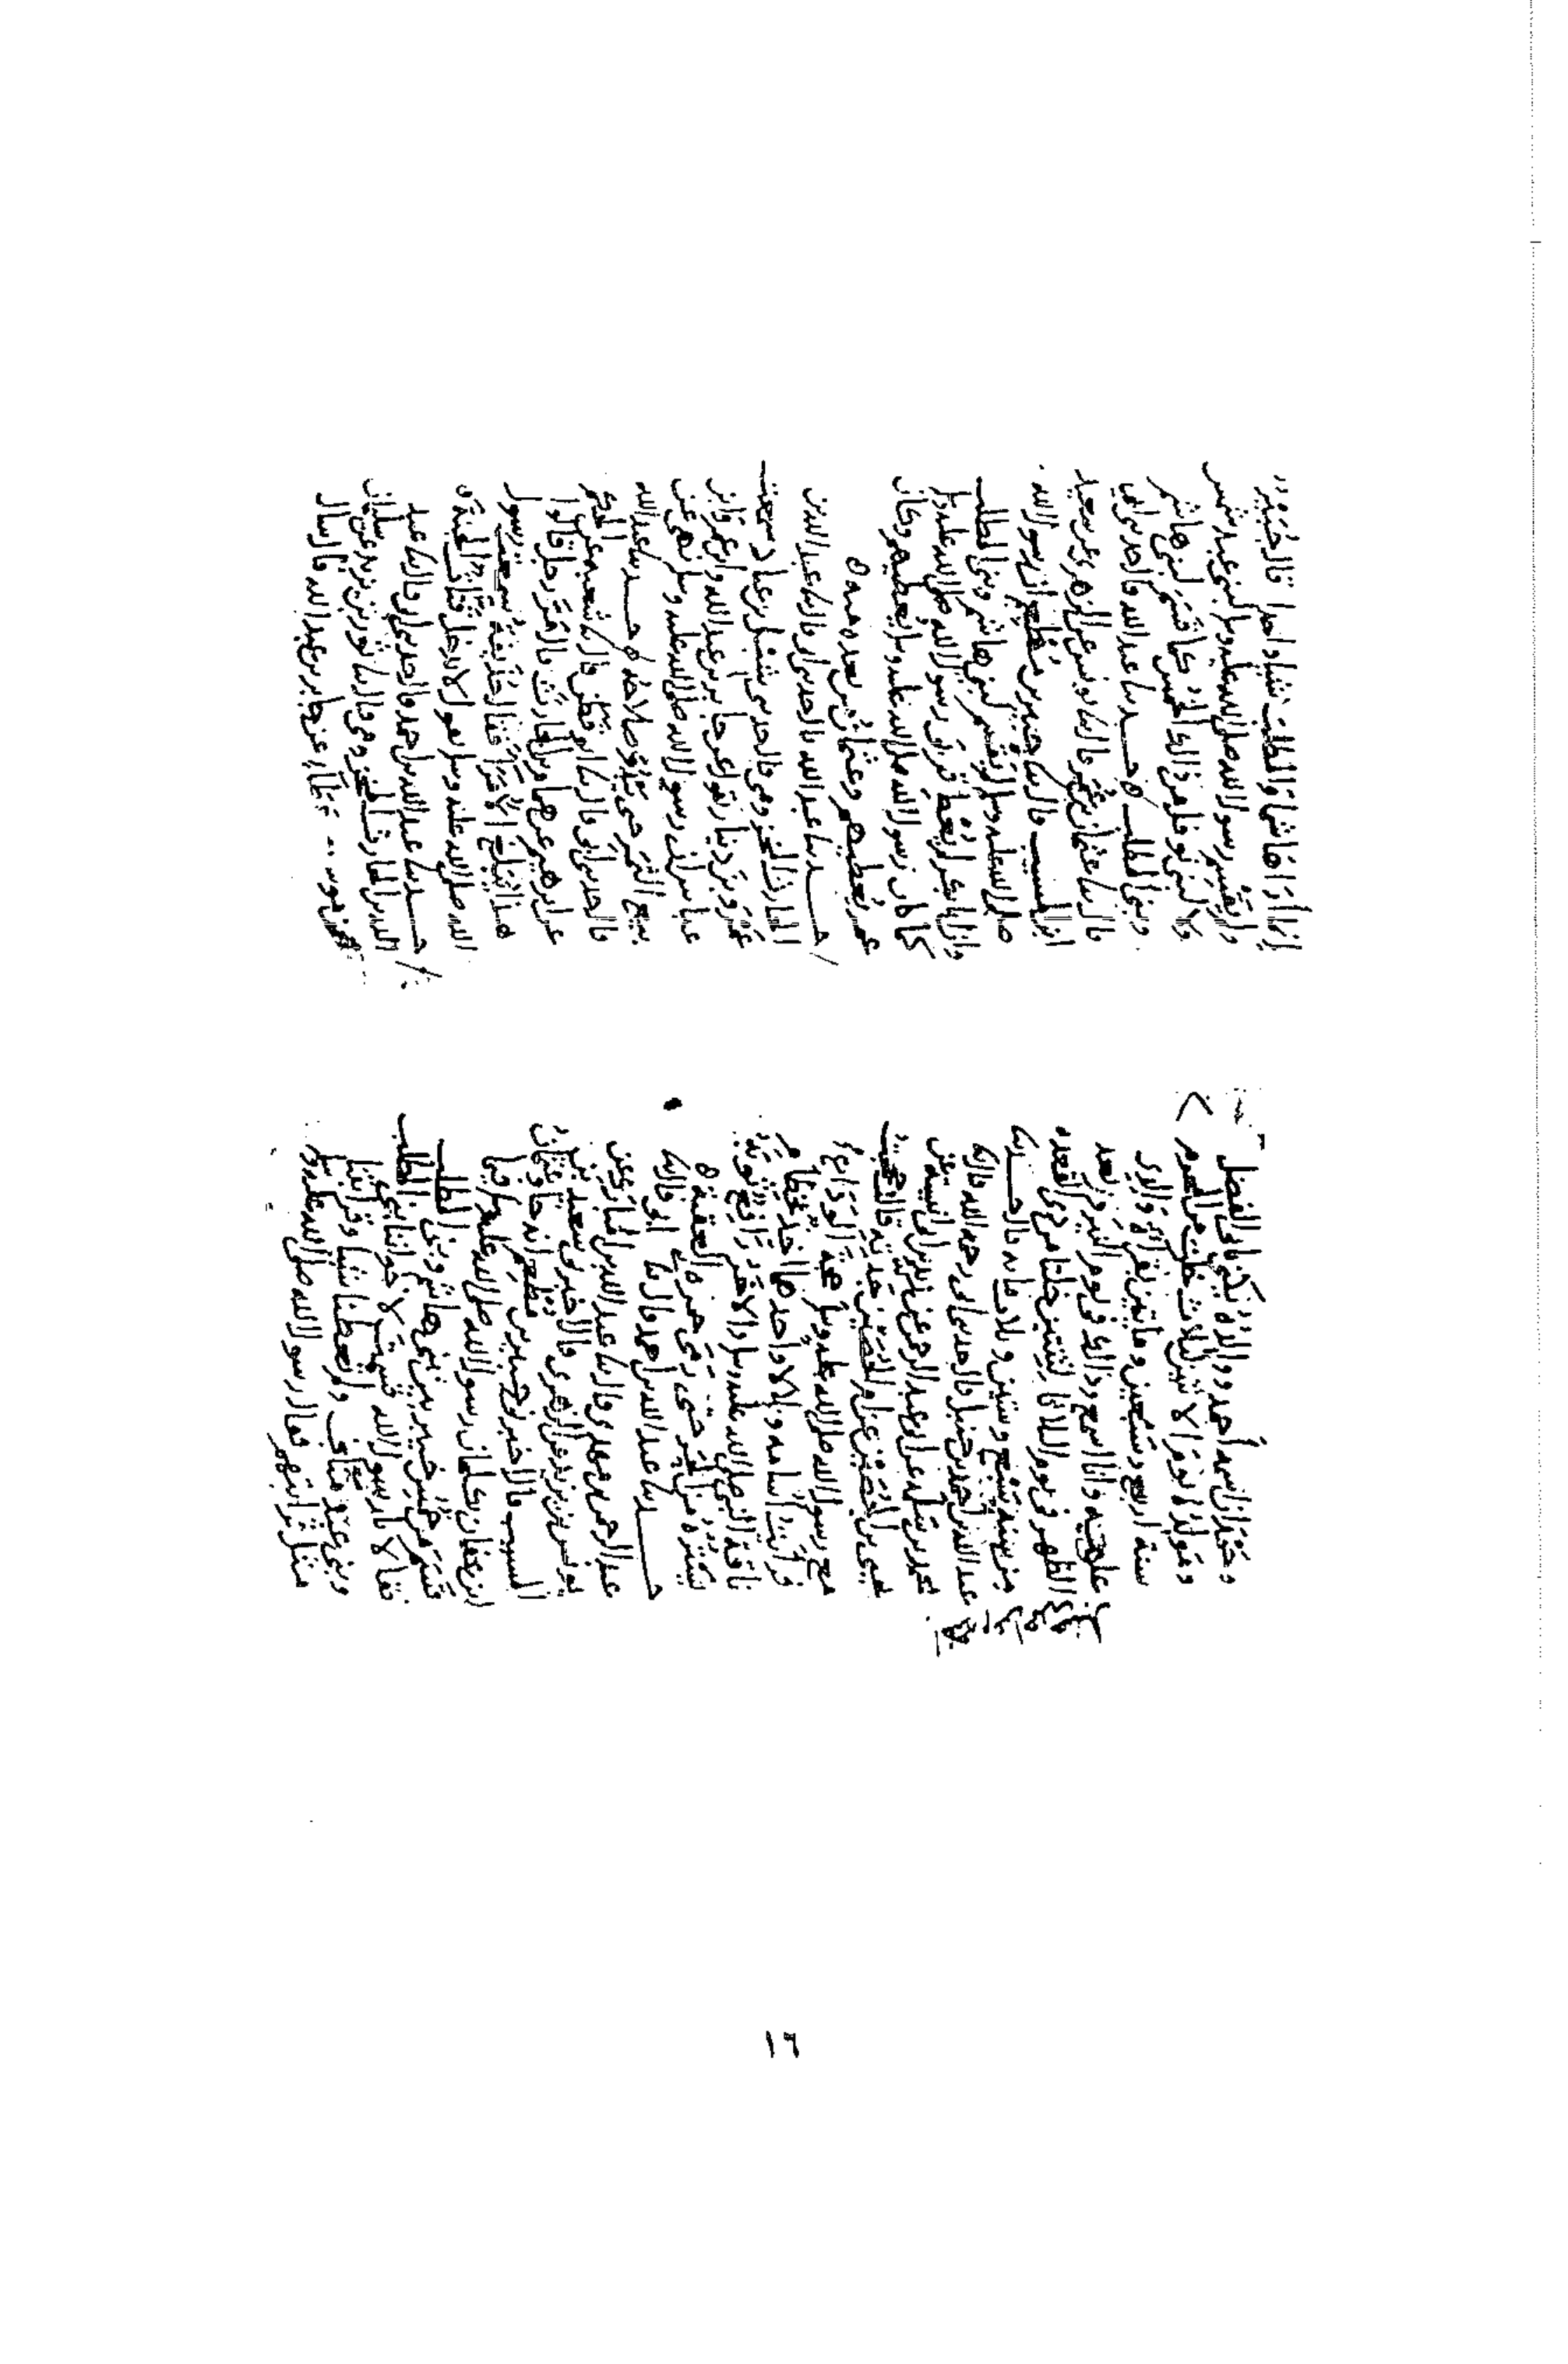 وذكر ان اسمه أحمد ووالده يكنى ابا الفضل
ومولده يوم الاثنين لثلاث خلت من المحرم
سنة اربع وسبعين ومايتين بقراة والدى
عليه وانا اسمع وذلك فى يوم
الظهر فى يوم الثلاثا لليلتين خلتا من ذى القعده
من سنة تسع وستين وثلاث مايه قال حدسا
عبد الله بن احمد بن حنبل قال حدسى ابى رحمه الله قال سا
محمد بن سلمه عن ابى عبد الرحيم عن زيد بن ابى انيسه عن
يحيى بن الحصين عن ام الحصين جدته قالت حججت
مع رسول الله صلى الله عليه وسلم حجة الوداع
فرأيت اسامه وبلالا واحدهما اخذ بخطام
ناقة النبى صلى الله عليه وسلم والاخر رافع ثوبه
يستره من الحر حتى رمى جمرة العقبة ه
حدسا عبد الله بن احمد قال سا ابى قال سا
عبد الرحمن بن مهدى قال سا عبد الله بن المبارك عن
يونس بن يزيد عن الزهرى قال اخبرنى سعيد بن
المسيب قال اخبرنى جبير بن مطعم انه جا وعثمان
ابن عفان يكلمان رسول الله صلى الله عليه وسلم فيما
قسم من خمس خيبر بين بنى هاشم وبنى المطلب
فقالا يا رسول الله قسمت لاخواننا بنى المطلب
وبنى عبد مناف ولم تعطنا شيا وقرابتنا
مثل قرابتهم فقال رسول الله صلى الله عليه وسلم
انما أرى هاشما والمطلب شيا واحدا قال جبير
ولم يقسم رسول الله صلى الله عليه وسلم لبنى عبد شمس
ولا لبنى نوفل من ذلك الخمس كما قسم لبنى هاشم
وبنى المطلب ه حدسا عبد الله قال حدسى ابى
قال سا عثمان بن عمر قال سا يونس عن الزهرى عن سعيد
ابن المسيب قال سا جبير بن مطعم ان رسول الله
صلى الله عليه وسلم لم يقسم لبنى هاشم وبنى المطلب
وان ابا بكر لم يعط قربى رسول الله صلى الله عليه وسلم
كما كان رسول الله صلى الله عليه وسلم يعطيهم وكان
عمر يعطيهم وعثمان من بعده منه ه
حدسا عبد الله قال حدسى ابى قال سا عبد الله بن
الحارث المخزومى قال حدسى شبل بن عباد سمعت
عمرو بن دينار يقول عن جابر بن عبد الله وابن عمر وابن
عباس ان رسول الله صلى الله عليه وسلم نهى عن
بيع الثمر حتى يبدو صلاحه ه حدسا عبد الله
قال حدسى ابى قال سا ابو قطن قال سا شعبه عن الحكم
عن ابرهيم عن همام بن الحارث قال مر رجل قالوا
هذا مبلغ الامرا فقال حذيفة سمعت رسول
الله صلى الله عليه وسلم يقول لا يدخل قتات الجنة ه
حدسا عبد الله بن احمد قال حدسى ابى قال سا عبد
الله بن الحارث المخزومى قال سا ثور بن يزيد عن سليمان
عطا عن جابر بن عبد الله قال سال
١٦